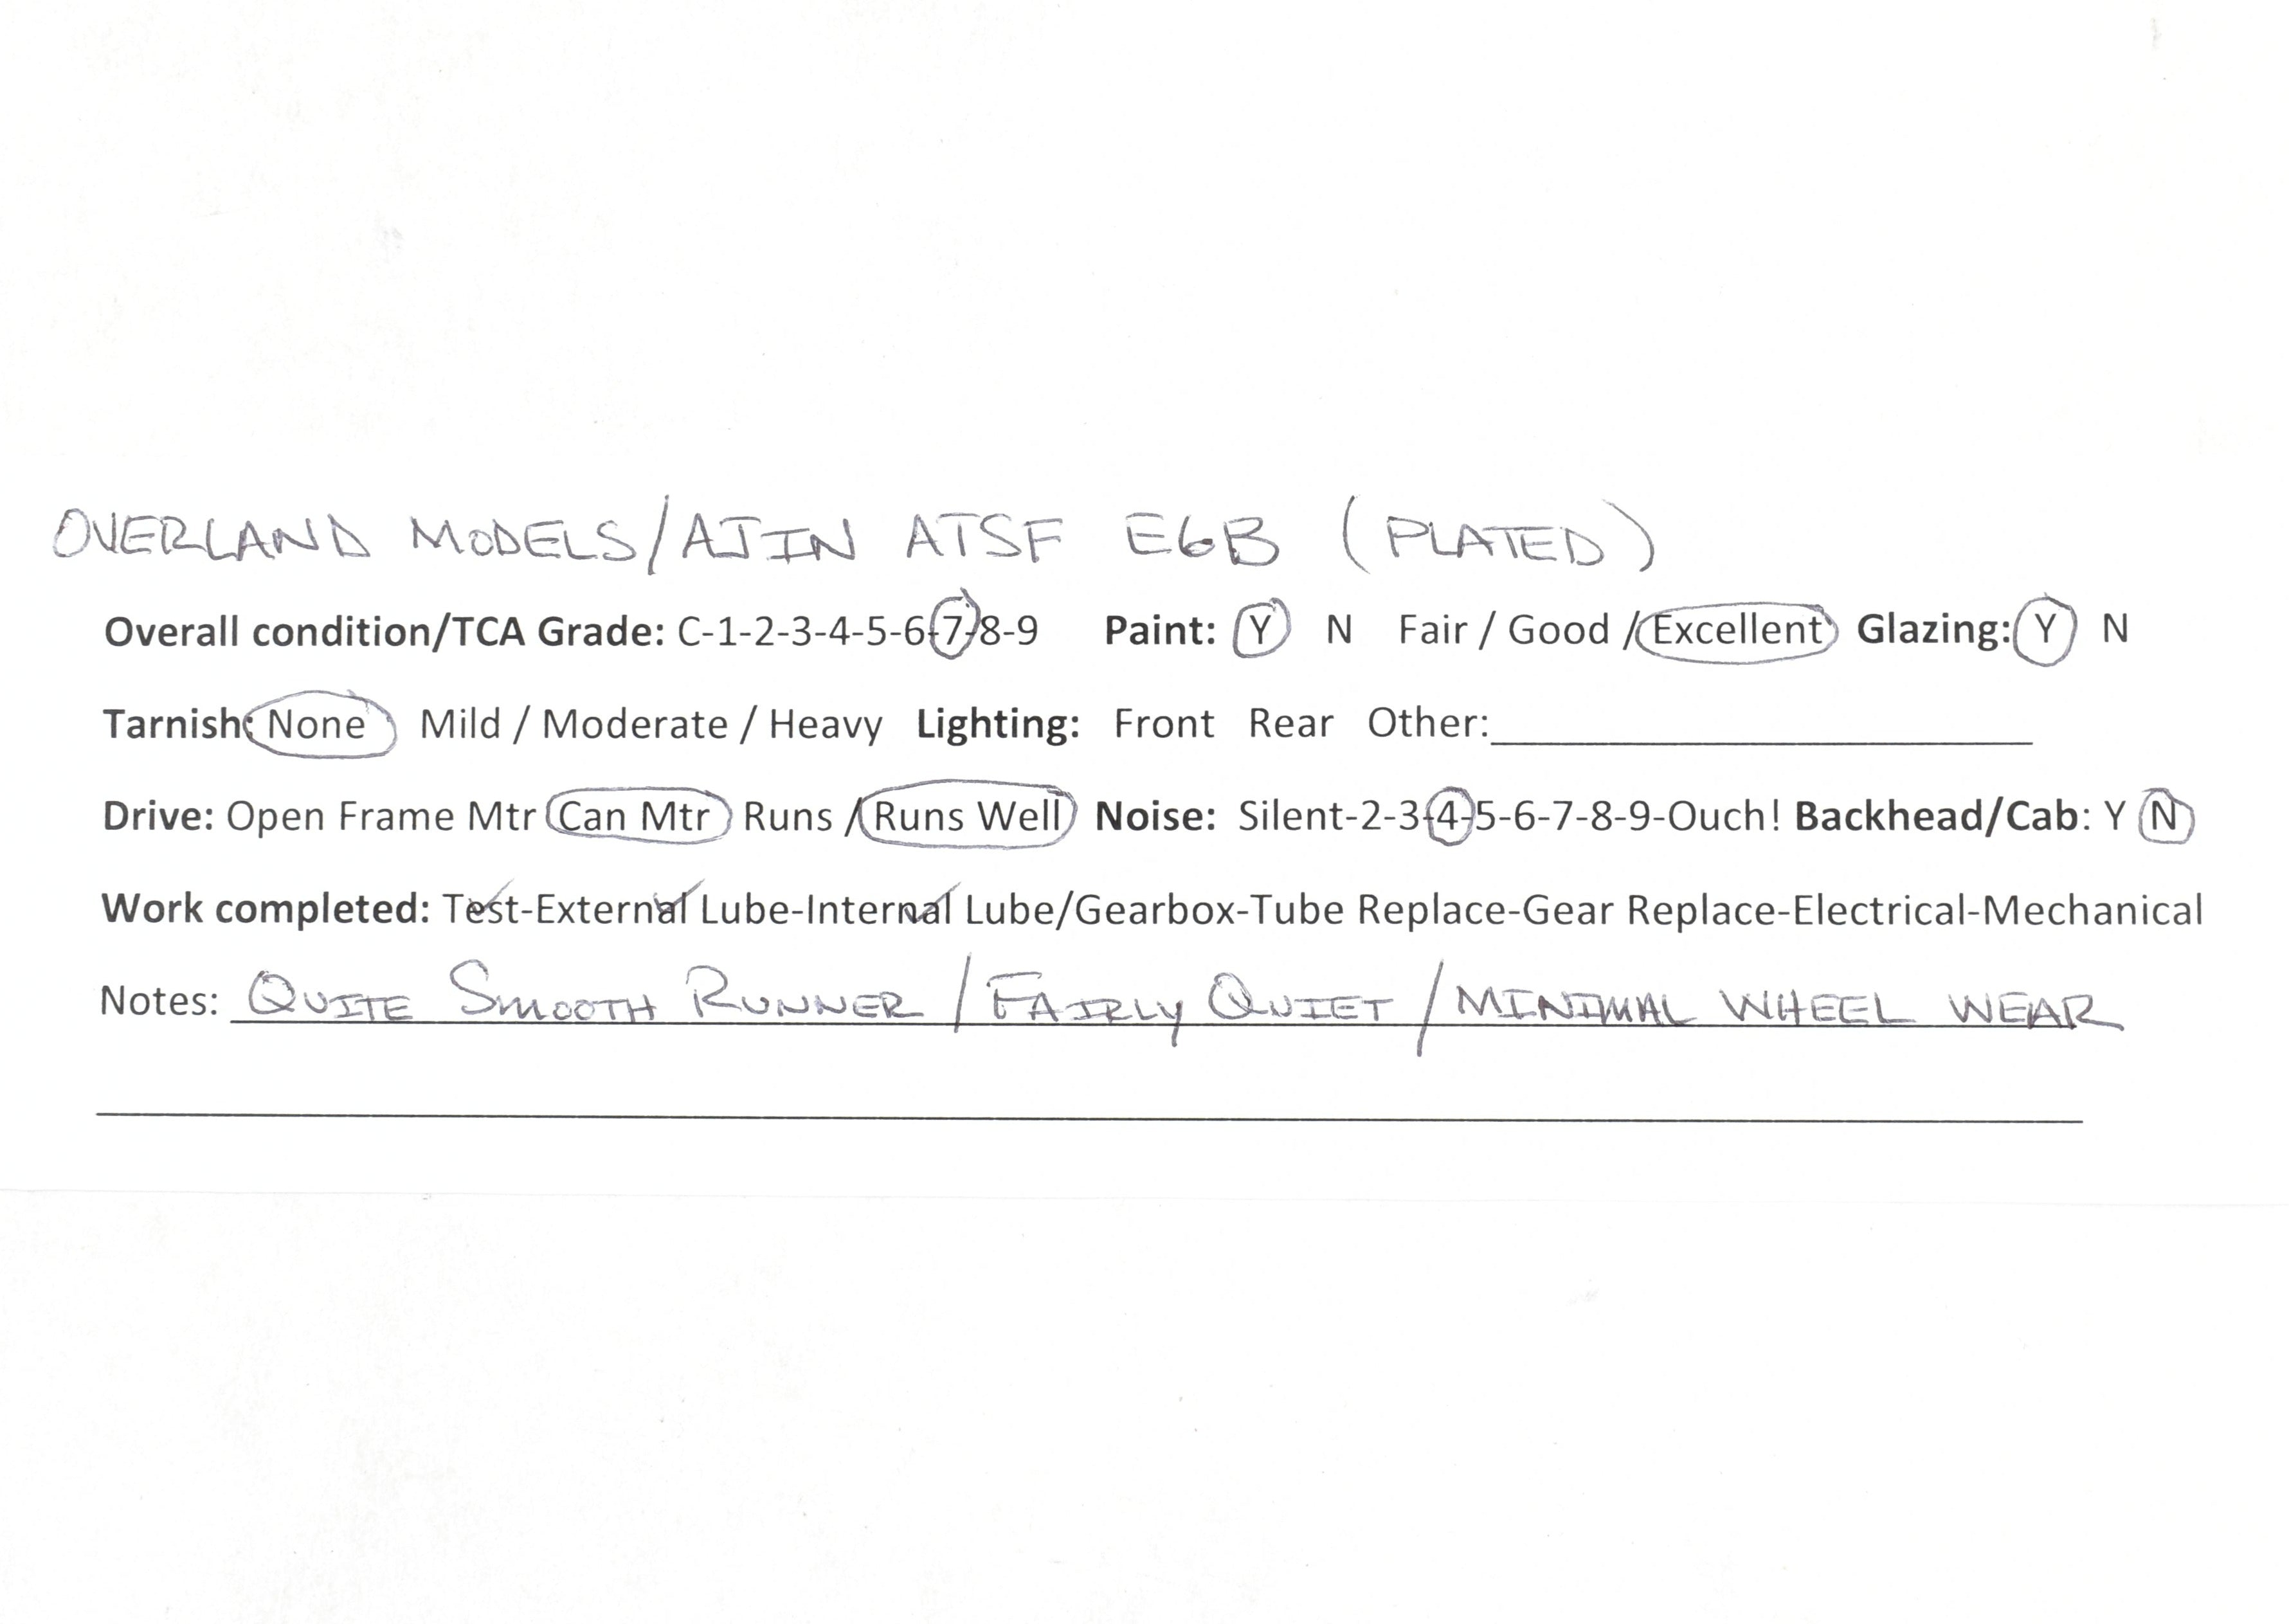 OVERLAND MODELS/AJIN ATSF E6B (PLATED)
Overall condition/TCA Grade: C-1-2-3-4-5-6-7-8-9 Paint: Y N Fair / Good / Excellent Glazing: Y N
Tarnish: None Mild / Moderate / Heavy Lighting: Front Rear Other:
Drive: Open Frame Mtr Can Mtr Runs / Runs Well Noise: Silent-2-3-4-5-6-7-8-9-Ouch! Backhead/Cab: Y N
Work completed: Test-External Lube-Internal Lube/Gearbox-Tube Replace-Gear Replace-Electrical-Mechanical
Notes: QUITE SMOOTH RUNNER / FAIRLY QUIET / MINIMAL WHEEL WEAR